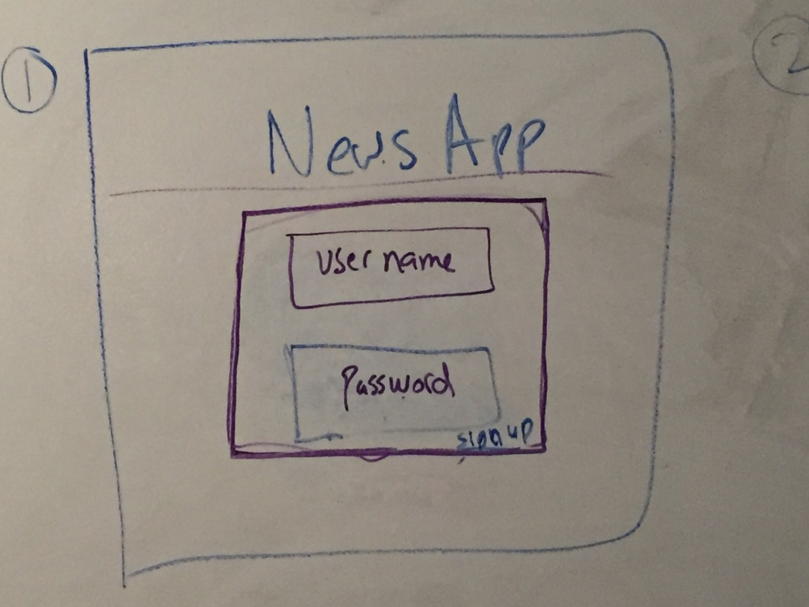 1
2
News App
username
Password
sign up